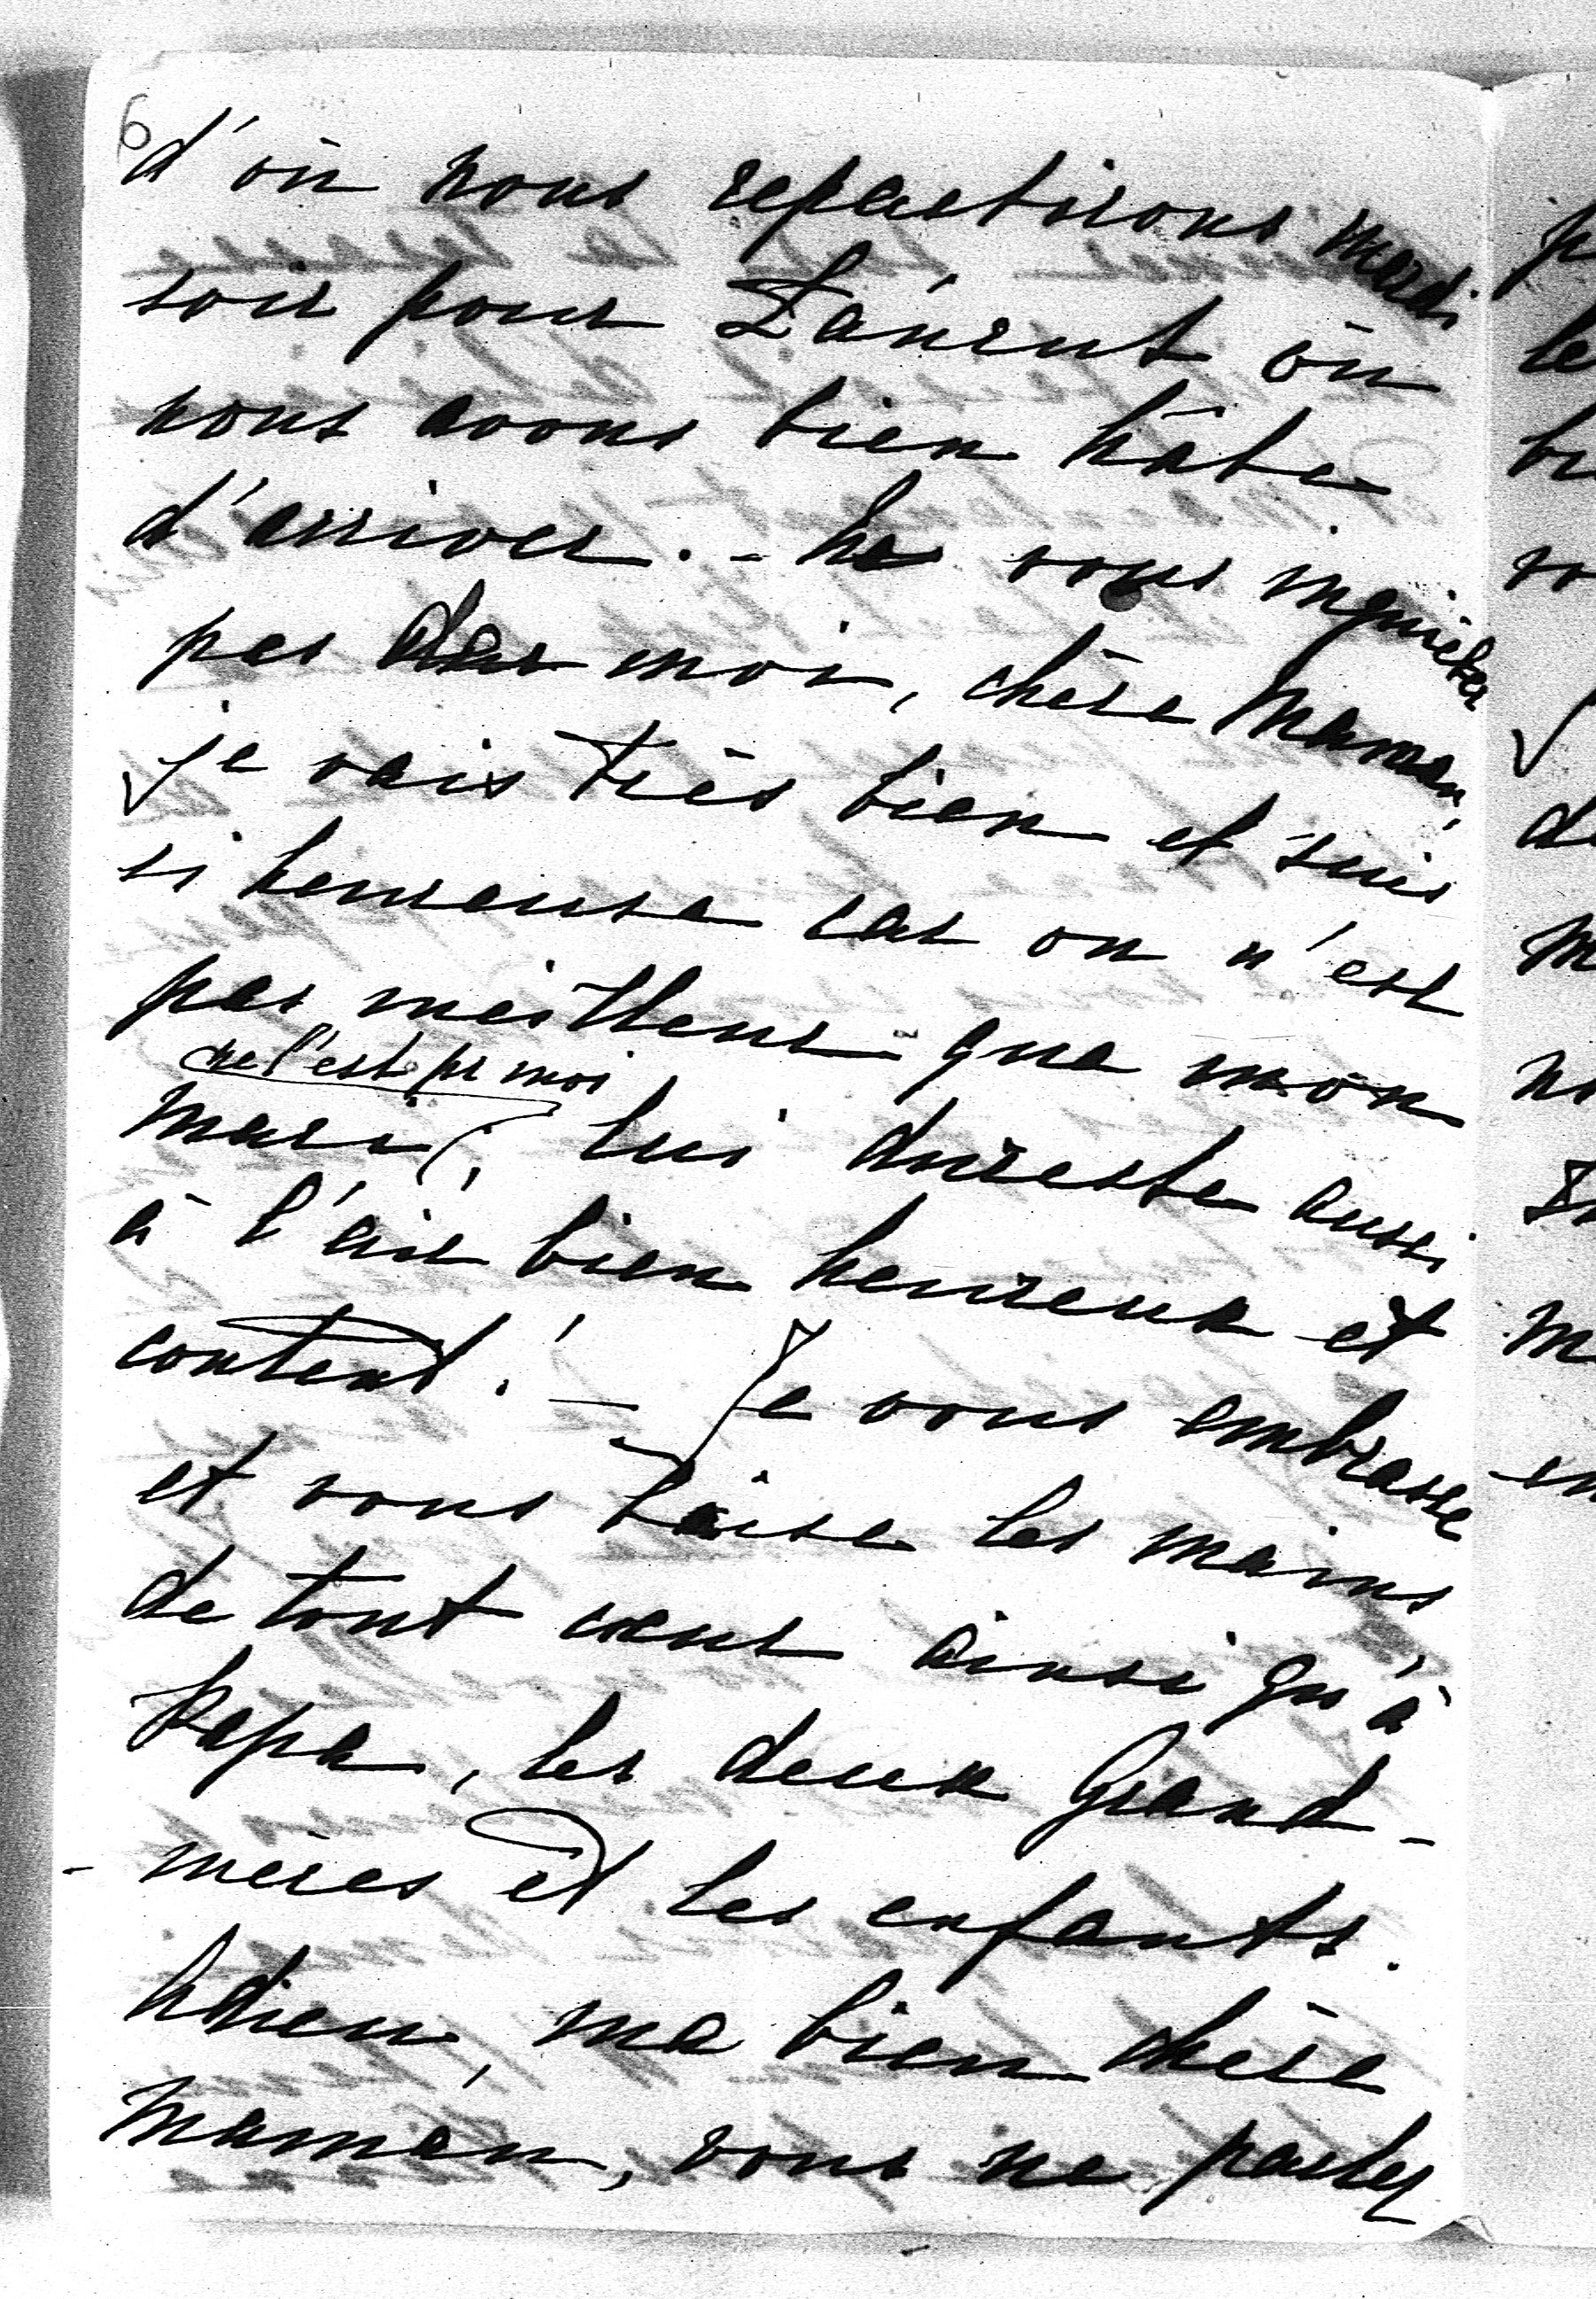 6
d'où nous repartirons mardi
soir pour Łańcut où
nous avons bien hâte
d'arriver. - Ne vous inquiétez
pas de moi, chère Maman,
je vais très bien et suis
si heureuse car on n'est
pas meilleur que mon
ne l'est pr moi
mari; lui dureste aussi
à l'air bien heureux et
content! - Je vous embrasse
et vous baise les mains
de tout cœur ainsi qu'à
Papa, les deux Grand-
-mères et les enfants.
Adieu, ma bien chère
Maman, vous ne partez